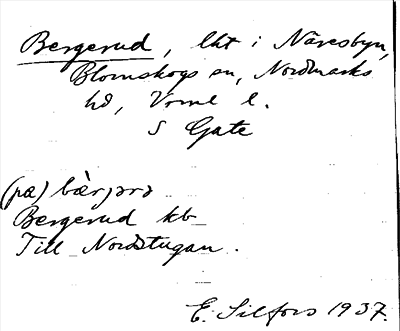 Bergerud, lht i Näresbyn,
Blomskogs sn, Nordmarks
hd, Vrml l.
S Gate
(pa) bær̀jərə
Bergerud kb
Till Nordstugan.
E. Silfors 1937.